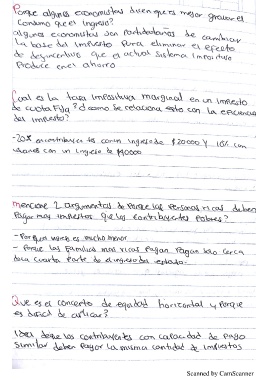 Porque algunos economistas dicen que es mejor gravar el
Consumo que el Ingreso?
algunos economistas son partidarios de cambiar
la base del impuesto para eliminar el efecto
de desincentivo que el actual sistema impositivo
Produce en el ahorro
Cual es la tasa impositiva marginal en un impuesto
de cuota fija? ¿como se relaciona esto con la eficiencia
del impuesto?
-20% a contribuyentes con ingreso de $20000 y 10% con
con un ingreso de $40000
mencione 2 argumentos de Porque las Personas ricas deben
Pagar mas impuestos que los contribuyentes Pobres?
- es mucho menor
- Porque las familias mas ricas Pagan Pagan solo cerca
de la cuarta Parte de el ingreso del estado-
Que es el concepto de equidad horizontal y Porque
es dificil de aplicar?
Idea de que los contribuyentes con capacidad de Pago
similar deben Pagar La misma cantidad de impuestos
Scanned by CamScanner